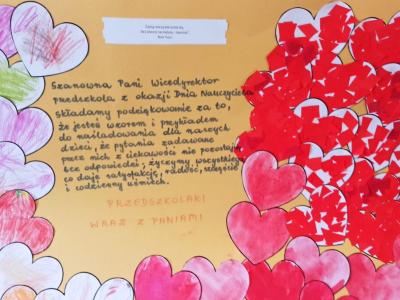 Szanowna Pani Wicedyrektor
przedszkola z okazji Dnia Nauczyciela
składamy podziękowanie za to,
że jesteś wzorem i przykładem
do naśladowania dla naszych
dzieci, że pytania zadawane
przez nich z ciekawości nie pozostają
bez odpowiedzi, życzymy wszystkiego
co daje satysfakcję, radość, szczęście
i codzienny uśmiech.
PRZEDSZKOLAKI
WRAZ Z PANIAMI